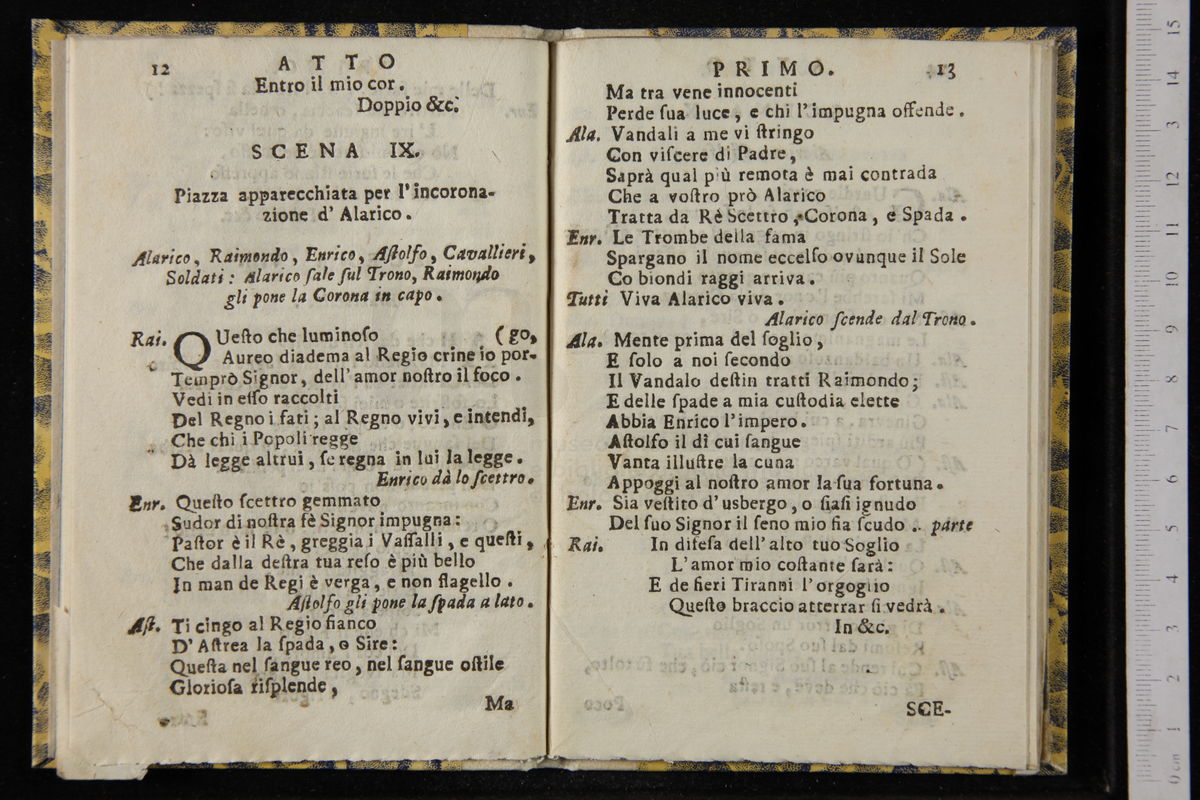 12 ATTO
Entro il mio cor.
Doppio &c.
SCENA IX.
Piazza apparecchiata per l'incorona-
zione d' Alarico.
Alarico, Raimondo, Enrico, Aſtolfo, Cavallieri,
Soldati: Alarico ſale ſul Trono, Raimondo
gli pone la Corona in capo.
Rai. QUeſto che luminoſo (go,
Aureo diadema al Regio crine io por-
Temprò Signor, dell' amor noſtro il foco.
Vedi in eſſo raccolti
Del Regno i fati; al Regno vivi, e intendi,
Che chi i Popoli regge
Dà legge altrui, ſe regna in lui la legge.
Enrico dà lo ſcettro.
Enr. Queſto ſcettro gemmato
Sudor di noſtra fè Signor impugna:
Paſtor è il Rè, greggia i Vaſſalli, e queſti,
Che dalla deſtra tua reſo è più bello
In man de Regi è verga, e non flagello.
Aſtolfo gli pone la ſpada a lato.
Aſt. Ti cingo al Regio fianco
D' Aſtrea la ſpada, o Sire:
Queſta nel ſangue reo, nel ſangue oſtile
Glorioſa riſplende,
Ma
PRIMO. 13
Ma tra vene innocenti
Perde ſua luce, e chi l'impugna offende.
Ala. Vandali a me vi ſtringo
Con viſcere di Padre,
Saprà qual più remota è mai contrada
Che a voſtro prò Alarico
Tratta da Rè Scettro, Corona, e Spada.
Enr. Le Trombe della fama
Spargano il nome eccelſo ovunque il Sole
Co biondi raggi arriva.
Tutti Viva Alarico viva.
Alarico ſcende dal Trono.
Ala. Mente prima del ſoglio,
E ſolo a noi ſecondo
Il Vandalo deſtin tratti Raimondo;
E delle ſpade a mia cuſtodia elette
Abbia Enrico l'impero.
Aſtolfo il di cui ſangue
Vanta illuſtre la cuna
Appoggi al noſtro amor la ſua fortuna.
Enr. Sia veſtito d' usbergo, o ſiaſi ignudo
Del ſuo Signor il ſeno mio fia ſcudo.. parte
Rai. In difeſa dell' alto tuo Soglio
L' amor mio coſtante ſarà:
E de fieri Tiranni l'orgoglio
Queſto braccio atterrar ſi vedrà.
In &c.
SCE-